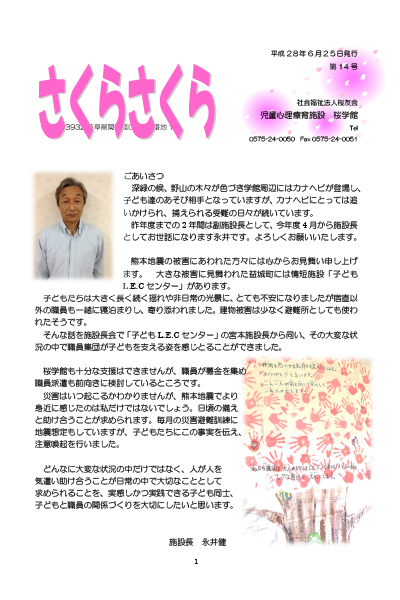 平成２８年６月２５日発行
第１４号
さくらさくら
社会福祉法人桜友会
児童心理療育施設　桜学館
Tel
0575-24-0050　Fax 0575-24-0051
ごあいさつ
深緑の候、野山の木々が色づき学館周辺にはカナヘビが登場し、
子ども達のあそび相手となっていますが、カナヘビにとっては追
いかけられ、捕えられる受難の日々が続いています。
昨年度までの２年間は副施設長として、今年度４月から施設長
としてお世話になります永井です。よろしくお願いいたします。
熊本地震の被害にあわれた方々には心からお見舞い申し上げ
ます。　大きな被害に見舞われた益城町には情短施設「子ども
L.E.C センター」があります。
子どもたちは大きく長く続く揺れや非日常の光景に、とても不安になりましたが宿直以
外の職員も一緒に寝泊まりし、寄り添われました。建物被害は少なく避難所としても使わ
れたそうです。
そんな話を施設長会で「子どもL.E.Cセンター」の宮本施設長から伺い、その大変な状
況の中で職員集団が子どもを支える姿を感じとることができました。
桜学館も十分な支援はできませんが、職員が募金を集め
職員派遣も前向きに検討しているところです。
災害はいつ起こるかわかりませんが、熊本地震でより
身近に感じたのは私だけではないでしょう。日頃の備え
と助け合うことが求められます。毎月の災害避難訓練に
地震想定もしていますが、子どもたちにこの事実を伝え、
注意喚起を行いました。
どんなに大変な状況の中だけではなく、人が人を
気遣い助け合うことが日常の中で大切なこととして
求められることを、実感しかつ実践できる子ども同士、
子どもと職員の関係づくりを大切にしたいと思います。
施設長　永井健
1